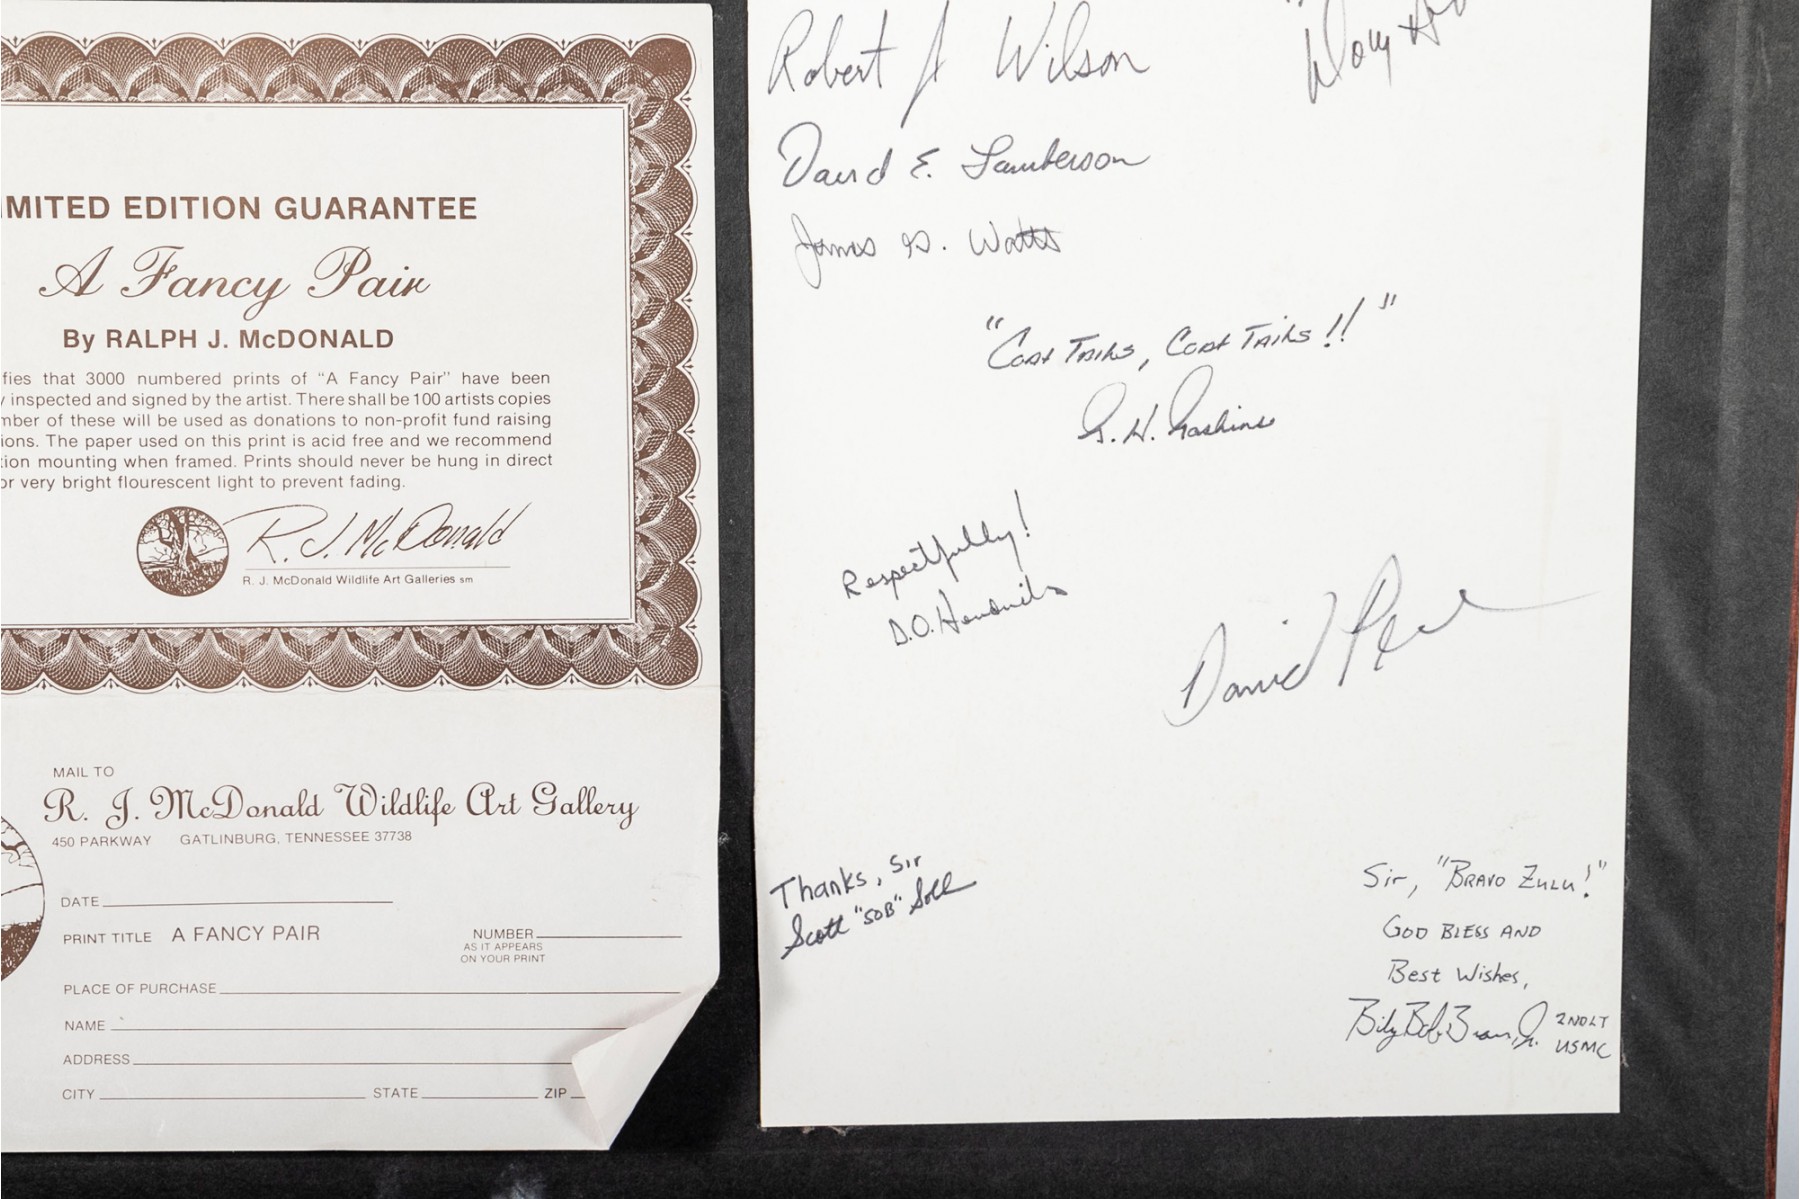 MITED EDITION GUARANTEE
A Fancy Pair
By RALPH J. McDONALD
fies that 3000 numbered prints of “A Fancy Pair” have been
y inspected and signed by the artist. There shall be 100 artists copies
mber of these will be used as donations to non-profit fund raising
ions. The paper used on this print is acid free and we recommend
tion mounting when framed. Prints should never be hung in direct
or very bright flourescent light to prevent fading.
R. J. McDonald
R. J. McDonald Wildlife Art Galleries sm
MAIL TO
R. J. McDonald Wildlife Art Gallery
450 PARKWAY GATLINBURG, TENNESSEE 37738
DATE
PRINT TITLE A FANCY PAIR
NUMBER
AS IT APPEARS
ON YOUR PRINT
PLACE OF PURCHASE
NAME
ADDRESS
CITY STATE ZIP
Robert J Wilson
David E. Lamberson
James D. Watts
"Coat Tails, Coat Tails!!"
Respectfully!
D.O.
David
Thanks, Sir
Scott "SOB"
Sir, "Bravo Zulu!"
God Bless and
Best Wishes,
Billy Bob Jr. 2ndLt
USMC